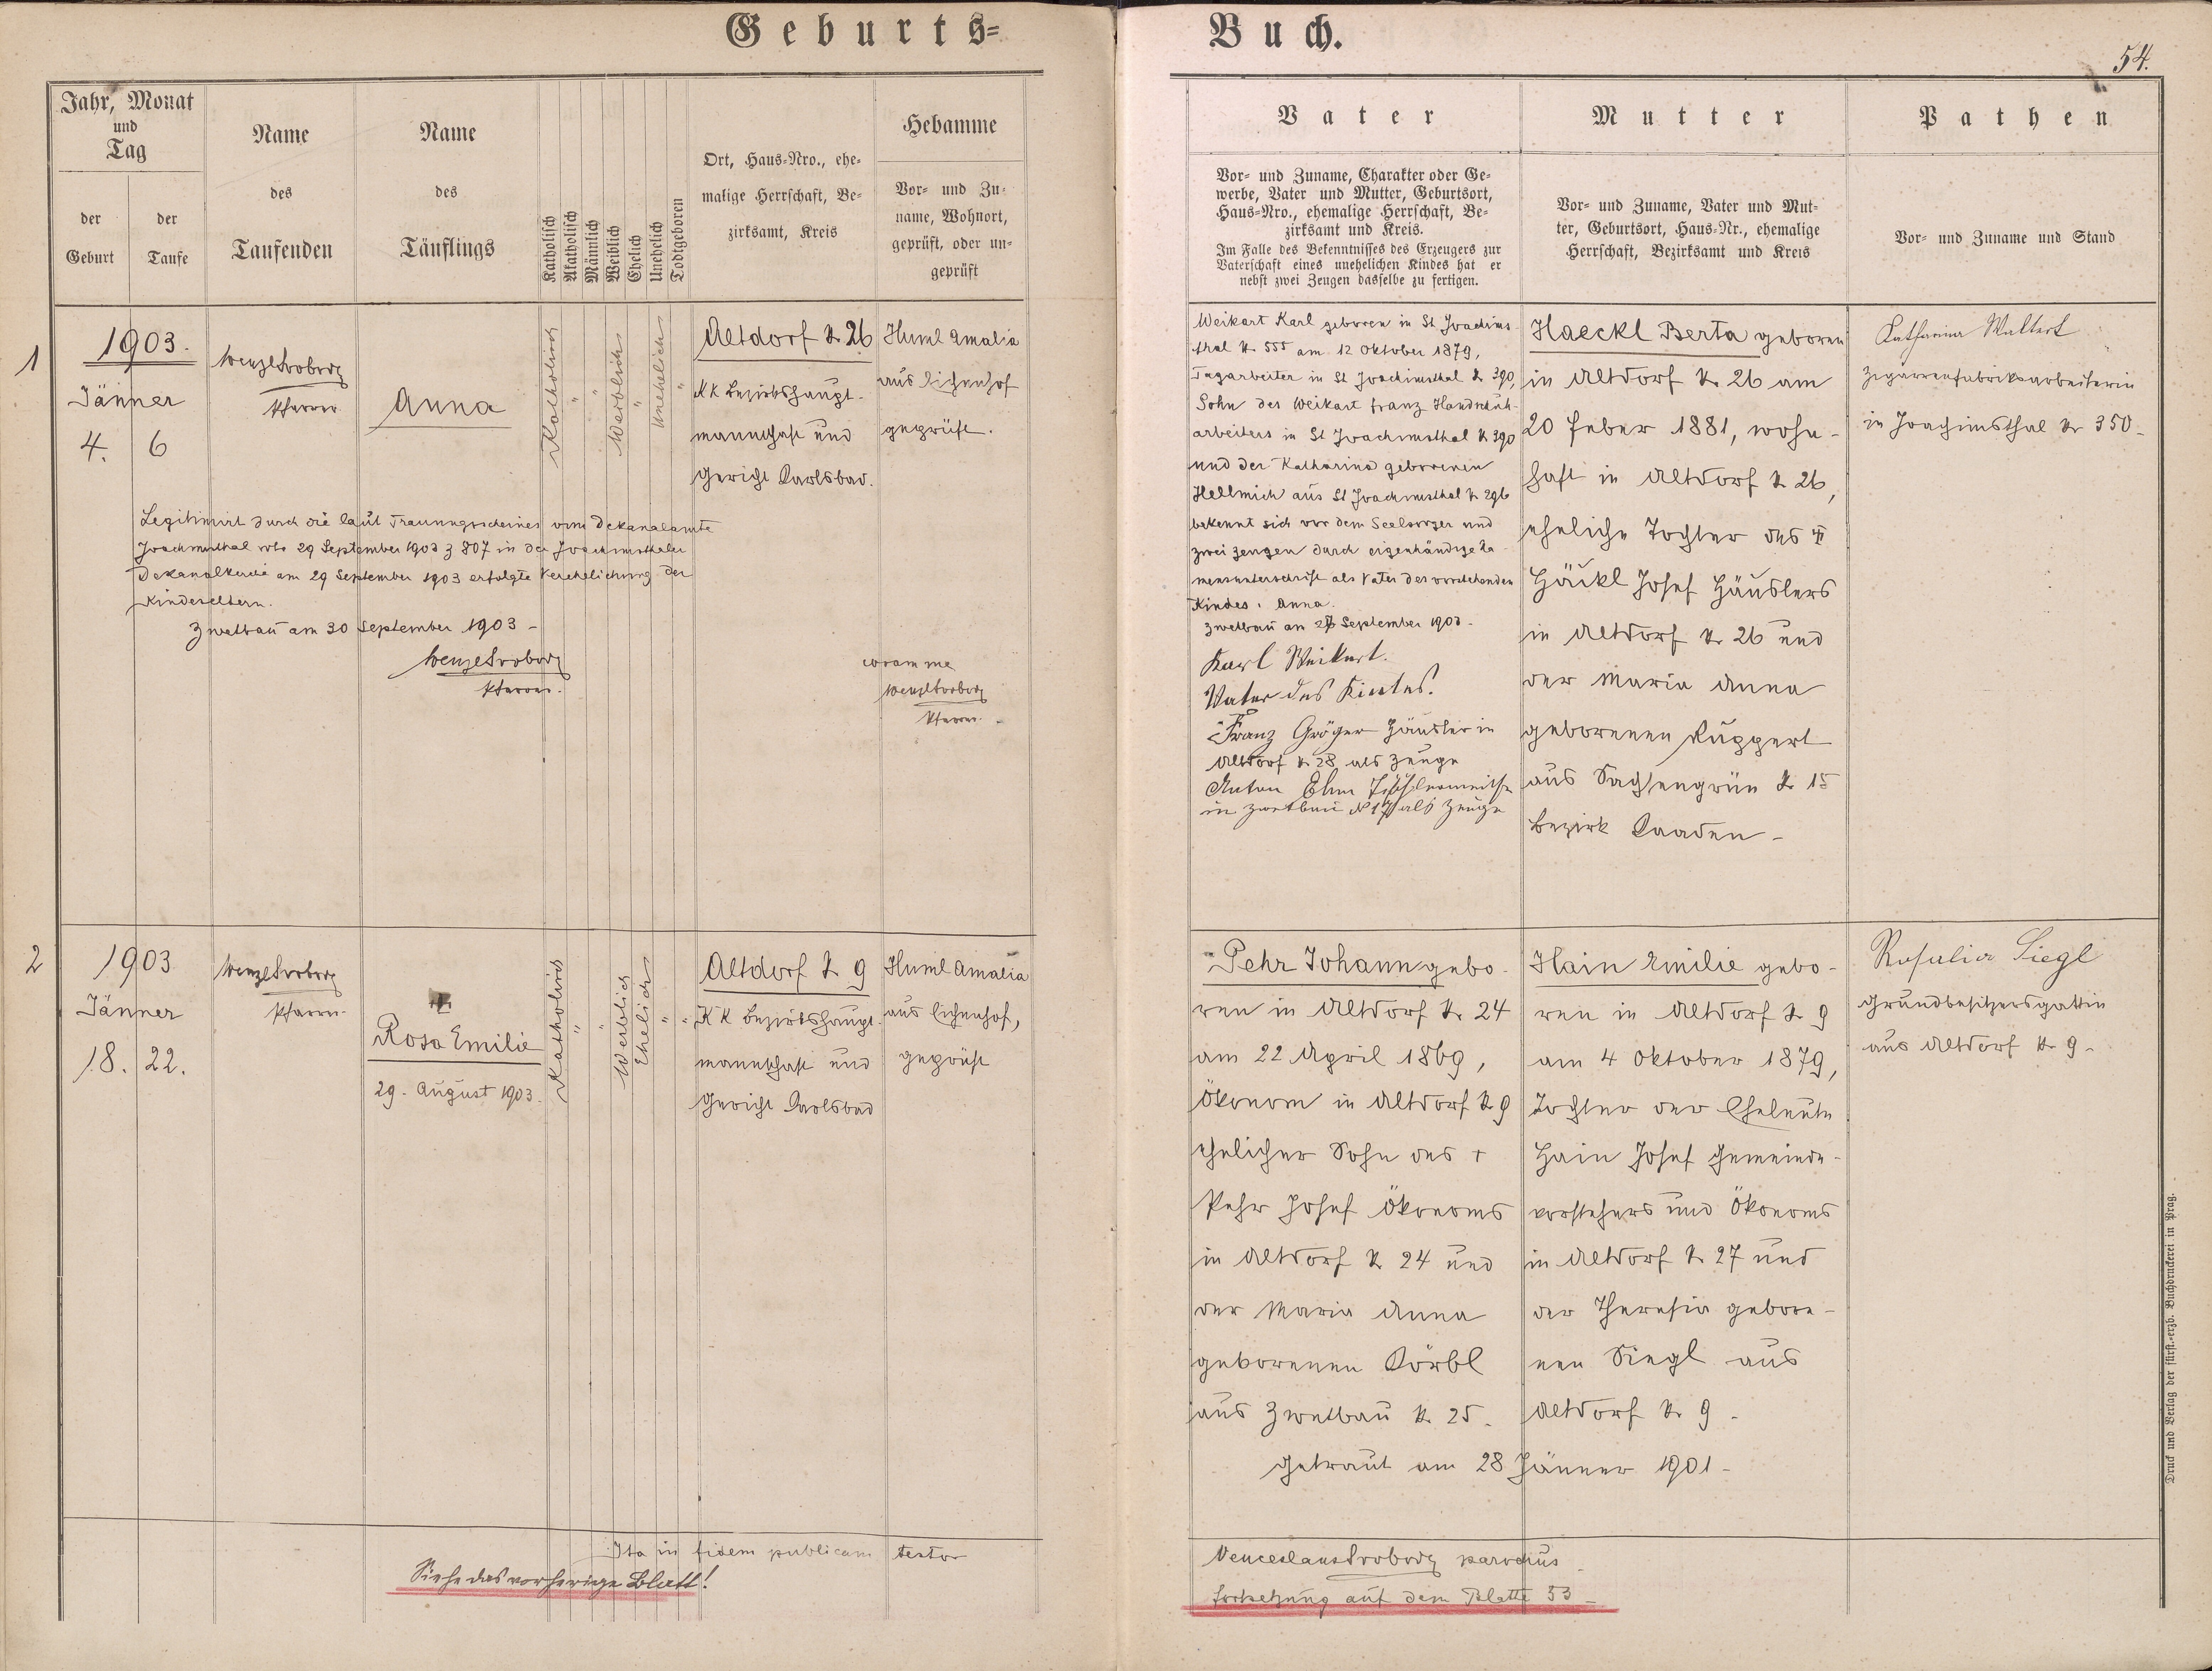 Geburts=
Buch.
54.
Jahr, Monat
und
Tag
der
Geburt
der
Taufe
Name
des
Taufenden
Name
des
Täuflings
Katholisch
Akatholisch
Männlich
Weiblich
Ehelich
Unehelich
Todtgeboren
Ort, Haus=Nro., ehe=
malige Herrschaft, Be=
zirksamt, Kreis
Hebamme
Vor= und Zu=
name, Wohnort,
geprüft, oder un=
geprüft
Vater
Vor= und Zuname, Charakter oder Ge=
werbe, Vater und Mutter, Geburtsort,
Haus=Nro., ehemalige Herrschaft, Be=
zirksamt und Kreis.
Im Falle des Bekenntnisses des Erzeugers zur
Vaterschaft eines unehelichen Kindes hat er
nebst zwei Zeugen dasselbe zu fertigen.
Mutter
Vor= und Zuname, Vater und Mut=
ter, Geburtsort, Haus=Nr., ehemalige
Herrschaft, Bezirksamt und Kreis
Pathen
Vor= und Zuname und Stand
1
1903.
Jänner
4. 6
Wenzl Svoboda
Pfarrer
Anna
Katholisch
"
"
Weiblich
"
Unehelich
"
Altdorf N. 26
KK Bezirkshaupt-
mannschaft und
Gericht Carlsbad.
Huml Amalia
aus Lichenhof
geprüft.
Legitimirt durch die laut Trauungsscheines vom Dekanalamte
Joachimsthal vto 29 September 1903 z 807 in der Joachimsthaler
Dekanalkirche am 29 September 1903 erfolgte Verehelichung der
Kindeseltern.
Zwetbau am 30 September 1903 -
Wenzl Svoboda
Pfarrer.
coram me
Wenzl Svoboda
Pfarrer.
Weikart Karl geboren in St Joachims-
thal N. 555 am 12 Oktober 1879,
Tagarbeiter in St Joachimsthal N. 390,
Sohn des Weikart Franz Handschuh-
arbeiters in St Joachimsthal N 390
und der Katharina geborenen
Hellmich aus St Joachimsthal N. 296
bekennt sich vor dem Seelsorger und
zwei Zeugen durch eigenhändige Na-
mensunterschrift als Vater des vorstehenden
Kindes: Anna.
Zwetbau am September 1903.
Karl Weikert.
Vater des Kindes.
Franz Gröger Häusler in
Altdorf N. 28 als Zeuge
Anton Ehm Tischlermeister
in Zwetbau N 17 als Zeuge
Haeckl Berta geboren
in Altdorf N. 26 am
20 Feber 1881, wohn-
haft in Altdorf N. 26,
eheliche Tochter des
Häckl Josef Häuslers
in Altdorf N. 26 und
der Maria Anna
geborenen Ruppert
aus Sachsengrün N. 15
Bezirk Caaden -
Katharina Waltert
Zigarrenfabriksarbeiterin
in Joachimsthal Nr 350-
2
1903
Jänner
18. 22.
Wenzl Svoboda
Pfarrer.
Rosa Emilie
29. August 1903.
Katholisch
"
"
Weiblich
Ehelich
"
"
Altdorf N. 9
KK Bezirkshaupt-
mannschaft und
Gericht Carlsbad
Huml Amalia
aus Lichenhof,
geprüft
Pehr Johann gebo-
ren in Altdorf N. 24
am 22 April 1869,
Ökonom in Altdorf N 9
ehelicher Sohn des †
Pehr Josef Ökonoms
in Altdorf N. 24 und
der Maria Anna
geborenen Körbl
aus Zwetbau N. 25.
Getraut am 28 Jänner 1901-
Hain Emilie gebo-
ren in Altdorf N 9
am 4 Oktober 1879,
Tochter der Eheleute
Hain Josef Gemeinde-
vorstehers und Ökonoms
in Altdorf N. 27 und
der Theresia gebore-
nen Siegl aus
Altdorf N. 9 -
Rosalia Siegl
Grundbesitzersgattin
aus Altdorf N. 9-
Ita in fidem publicam testor
Wenceslaus Svoboda parochus
Siehe das vorherige Blatt!
Fortsetzung auf dem Blatte 53 -
Druck und Verlag der fürst.-erzb. Buchdruckerei in Prag.